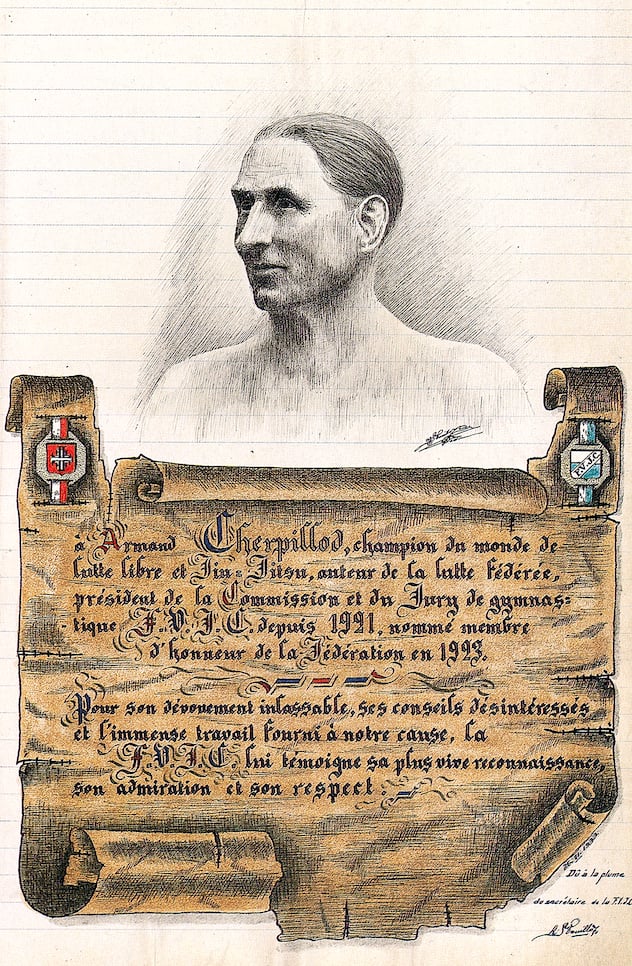 F.V.J.C.
à Armand Cherpillod, champion du monde de
lutte libre et Jiu=Jitsu, auteur de la lutte fédérée,
président de la Commission et du Jury de gymnas=
tique F.V.J.C. depuis 1921, nommé membre
d'honneur de la Fédération en 1923.
Pour son dévouement inlassable, ses conseils désintéressés
et l'immense travail fourni à notre cause, la
F.V.J.C. lui témoigne sa plus vive reconnaissance,
son admiration et son respect.
Dû à la plume
du secrétaire de la F.V.J.C.